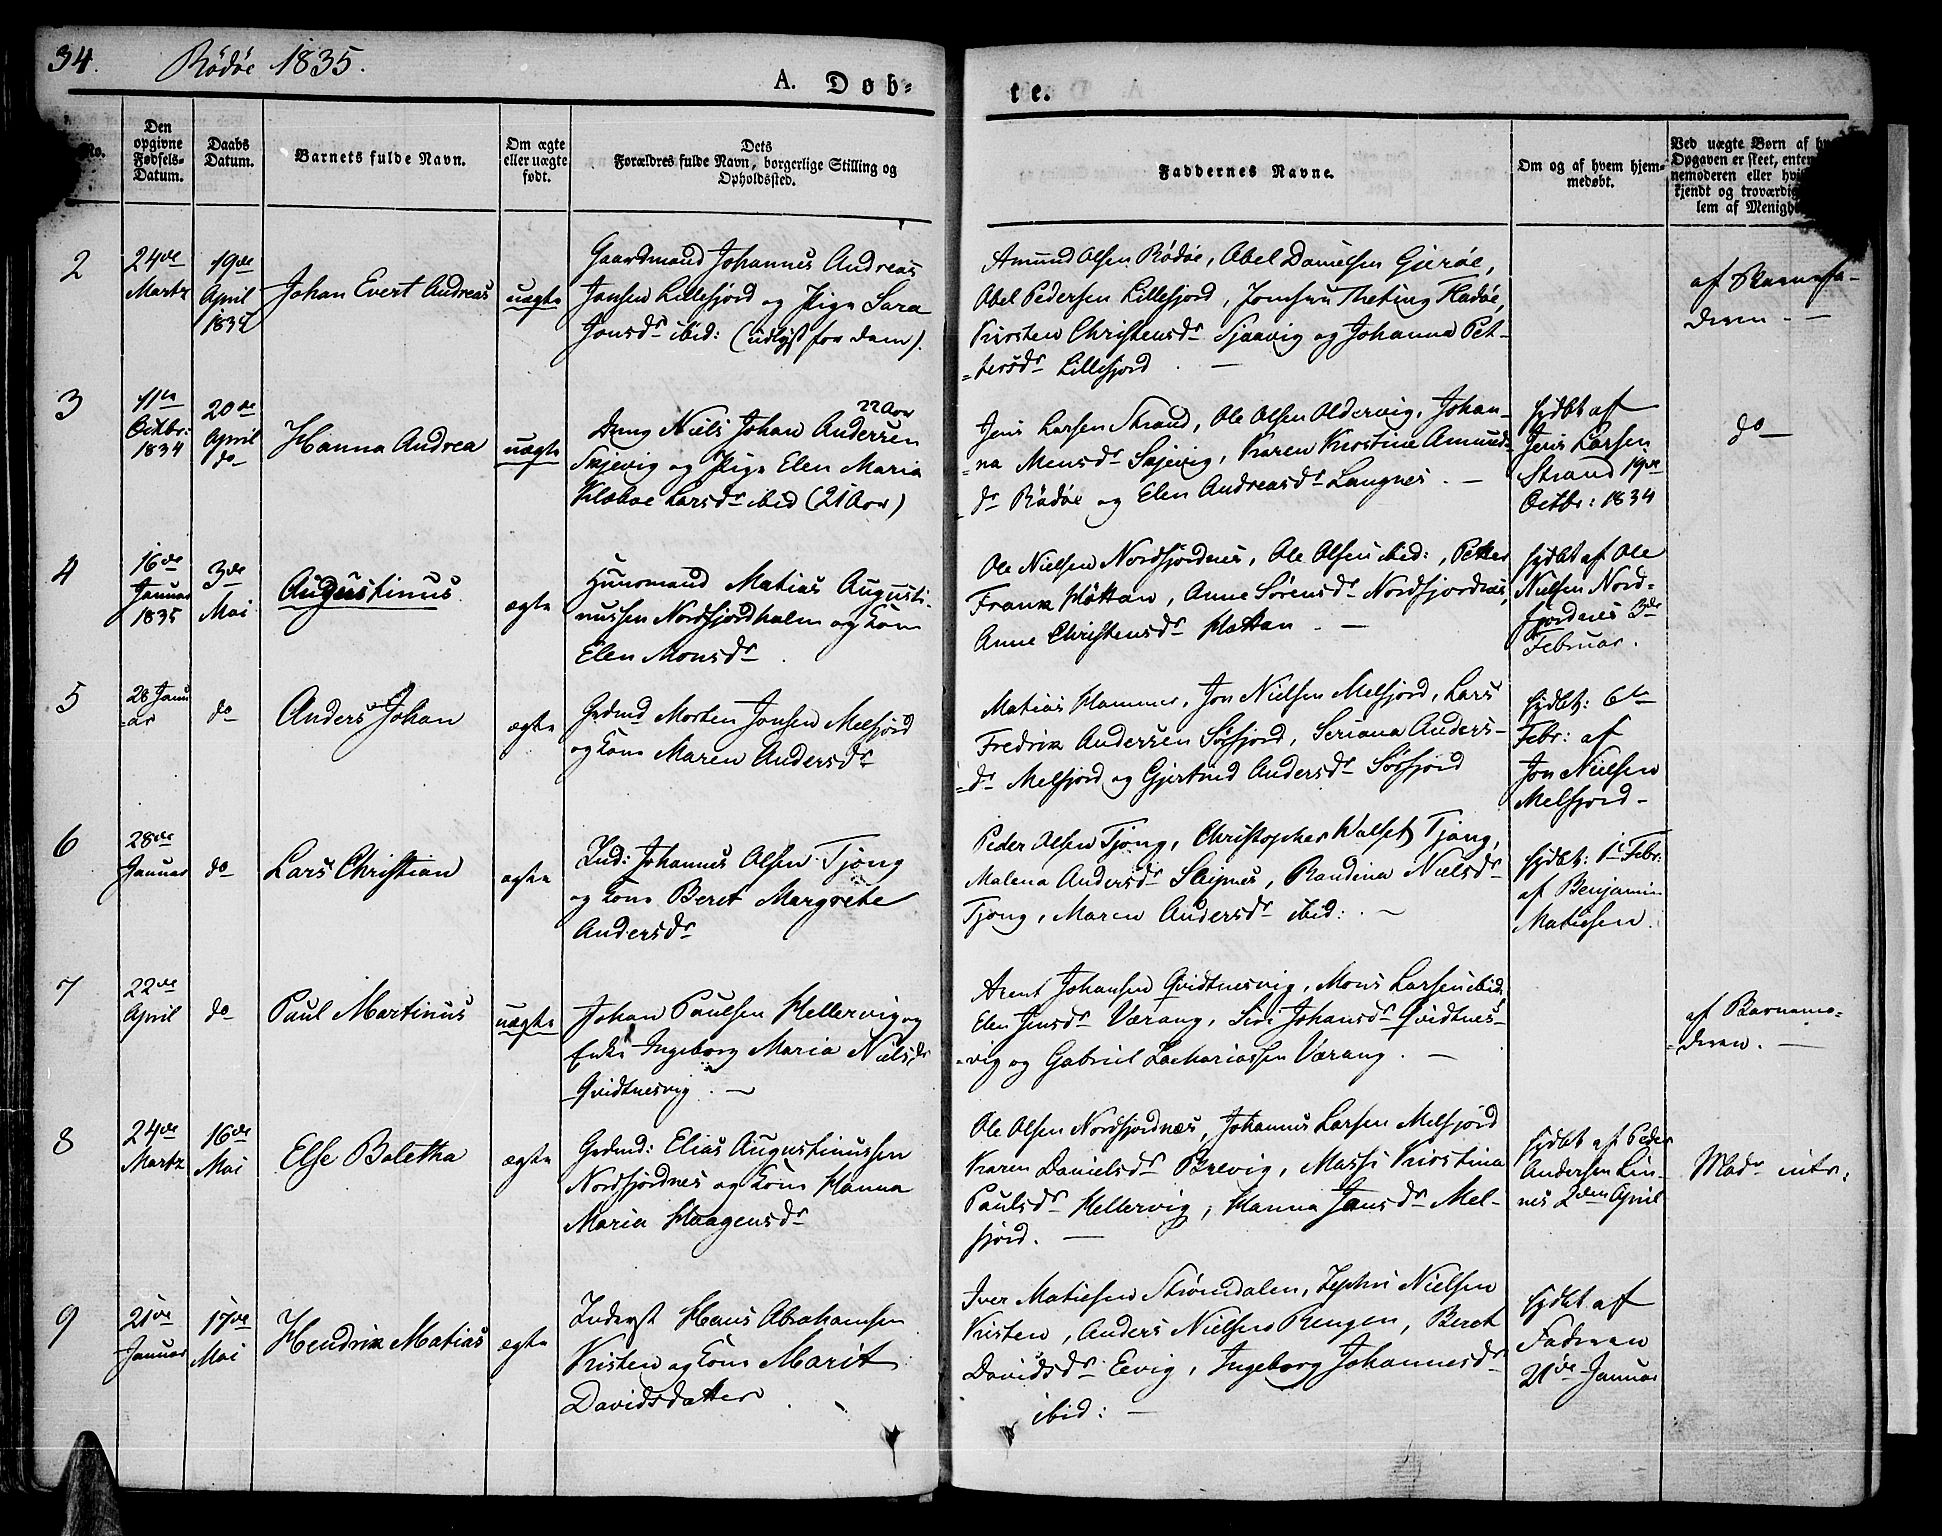 34. Rödöe 1835.
A. Døb-
te.
No.
Den opgivne Fødsels-Datum.
Daabs Datum.
Barnets fulde Navn.
Om ægte eller uægte født.
Dets Forældres fulde Navn, borgerlige Stilling og Opholdssted.
Faddernes Navne.
Om og af hvem hjem-
medøbt.
Ved uægte Børn af
Opgaven er skeet, enten
nemoderen eller
kjendt og troværdig
lem af Menigh
2
24de
Martz
19de
April
1835
Johan Evert Andreas
uægte
Gaardmand Johannes Andreas
Jansen Lillefjord og Pige Sara
Jonsdr ibid: (udlyst for dem).
Amund Olsen Rödöe, Abel Danielsen Gjeröe,
Abel Pedersen Lillefjord, Theting Flodöe,
Kirsten Christensdr Sjaavig og Johanna Pet-
=tersdr Lillefjord. —
af Barnefa-
deren —
3
11te
Octbr:
1834
20de
April
do
Hanna Andrea
uægte
22 Aar
Dreng Niels Johan Andersen
Skjevig og Pige Elen Maria
Klæboe Larsdr ibid (21 Aar)
Jens Larsen Strand, Ole Olsen Oldervig, Johan-
=na Monsdr Skjevig, Karen Kirstine Amunds-
dr Rödöe og Elen Andreasdr Langnes. —
hjdbt af
Jens Larsen
Strand 19de
Octbr: 1834
do —
4
16de
Januar
1835
3de
Mai
Augustinus
ægte
Huusmand Matias Augusti-
nussen Nordfjordholm og Kone
Elen Monsdr.
Ole Nielsen Nordfjordnes, Ole Olsen ibid:, Petter
Frank Hottan, Anne Sörensdr Nordfjordnes,
Anne Christensdr Hattan. —
hjdbt af Ole
Nielsen Nord-
fjordnes 3de
Februar.
5
28 Janu
=ar
do
Anders Johan
ægte
Grdmd Morten Jonsen Melfjord
og Kone Maren Andersdr
Matias Hammer, Jon Nielsen Melfjord, Lars
Fredrik Andersen Sörfjord, Seriana Anders-
=dr Melfjord og Gjertrud Andersdr Sörfjord
hjdbt: 6te
Febr: af
Jon Nielsen
Melfjord-
6
28de
Januar
do
Lars Christian
ægte
Ind: Johannes Olsen Tjong
og Kone Beret Margrete
Andersdr
Peder Olsen Tjong, Christopher Tjong,
Malena Andersdr Slejnes, Randina Nielsdr
Tjong, Maren Andersdr ibid: —
hjdbt: 1te Febr:
af Benjamin
Matiesen.
7
22de
April
do
Paul Martinus
uægte
Johan Paulsen Hellervig og
Enke Ingeborg Maria Nielsdr
Qvidtnesvig. —
Arent Johansen Qvidtnesvig, Mons Larsen ibid
Elen Jensdr Værang, Siri Johansdr Qvidtnes-
=vig og Gabriel Zachariassen Værang. —
af Barnemo-
=deren. —
8
24de
Martz
16de
Mai
Else Boletha
ægte
Grdmd: Elias Augustinussen
Nordfjordnes og Kone Hanna
Maria Haagensdr
Ole Olsen Nordfjordnæs, Johannes Larsen Melfjord
Karen Danielsdr Brevig, Massi Kirstina
Paulsdr Hellervig, Hanna Jansdr Mel-
fjord. —
hjdbt af Peder
Andersen Lin-
nes 2den April
Modr intr:
9
21de
Januar
17de
Mai
Hendrik Matias
ægte
Inderst Hans Abrahamsen
Kristen og Kone Marit
Davidsdatter
Iver Matiesen Strömdalen, Zephri Nielsen
Kristen, Anders Nielsen Rengen, Beret
Davidsdr Eevig, Ingeborg Johannesdr
ibid: —
hjdbt af
Faderen
21de Januar